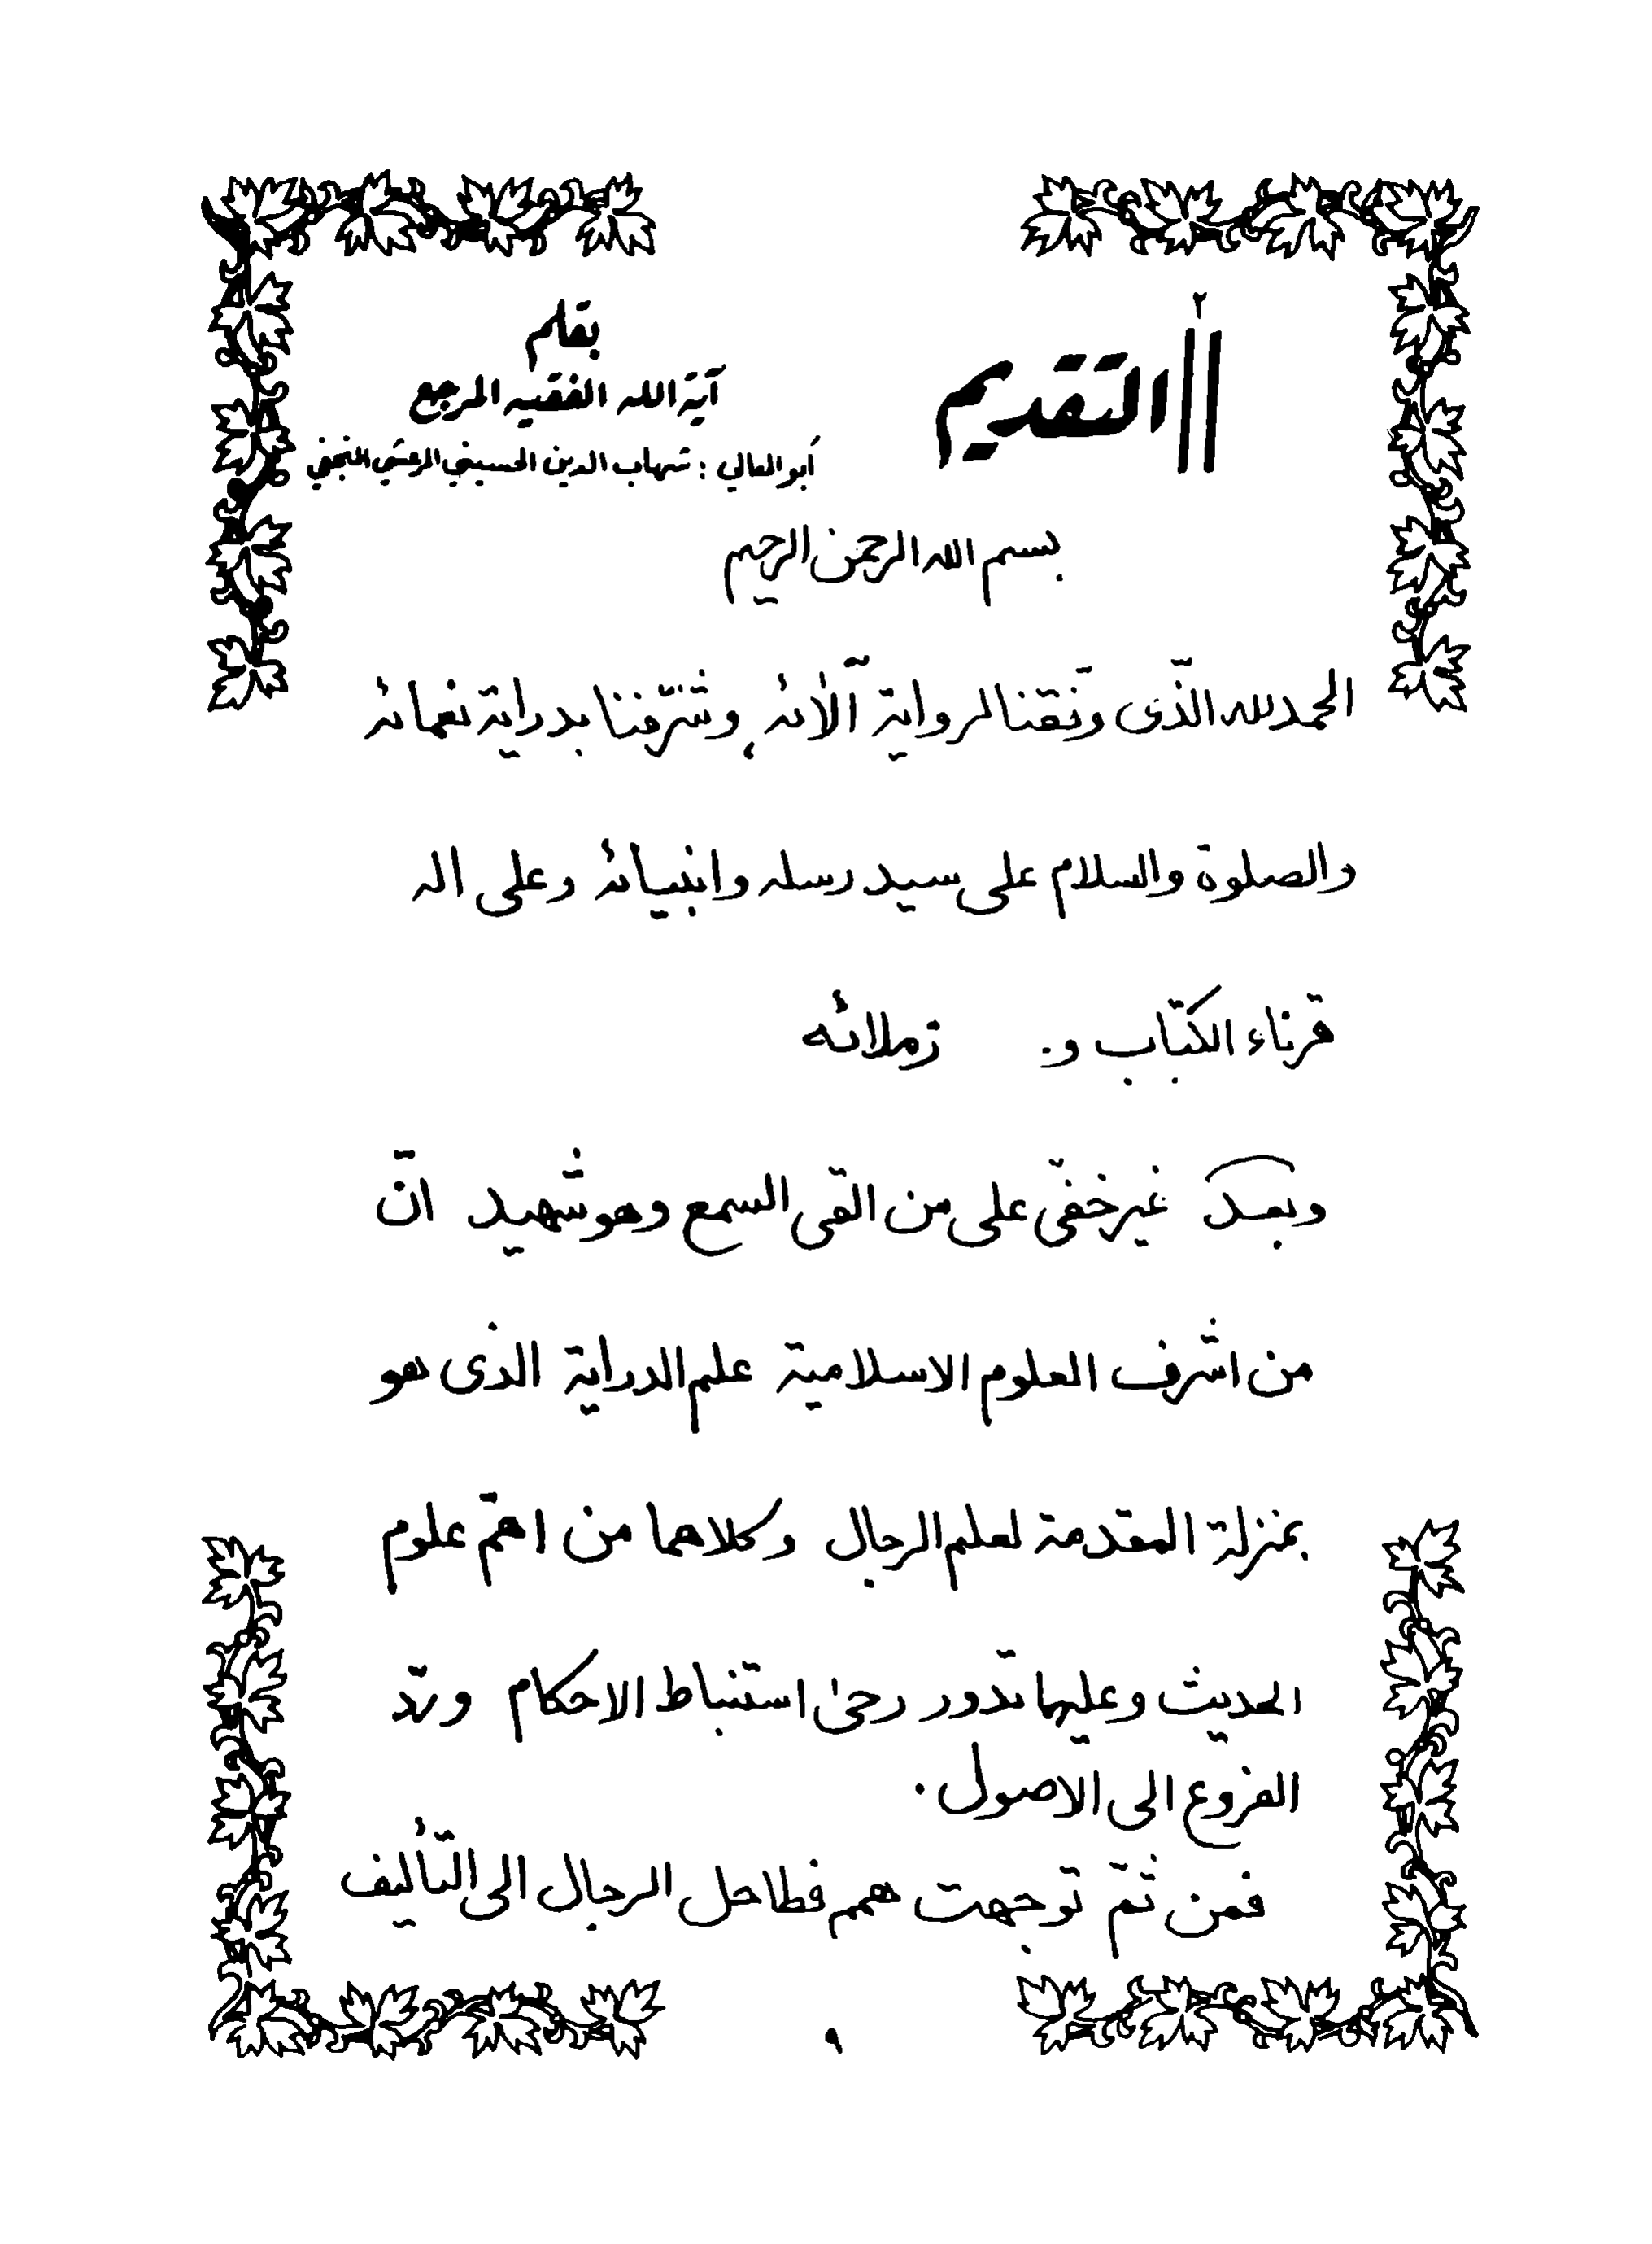 ٢
التقديم
بقلم
آية الله الفقيه المرجع
أبو المعالي : شهاب الدين الحسيني المرعشي النجفي
بسم الله الرحمن الرحيم
الحمد لله الّذى وفّقنا لرواية آلائه ، وشرّفنا بدراية نعمائه
والصلوة والسلام على سيد رسله وانبيائه وعلى اله
قرناء الكتاب و زملائه
وبعد غير خفّى على من القى السمع وهو شهيد انّ
من اشرف العلوم الاسلامية علم الدراية الذى هو
بمنزلة المقدمة لعلم الرجال وكلاهما من اهمّ علوم
الحديث وعليهما تدور رحىٰ استنباط الاحكام وردّ
الفروع الى الاصول .
فمن ثمّ توجهت همم فطاحل الرجال الى التأليف
٩